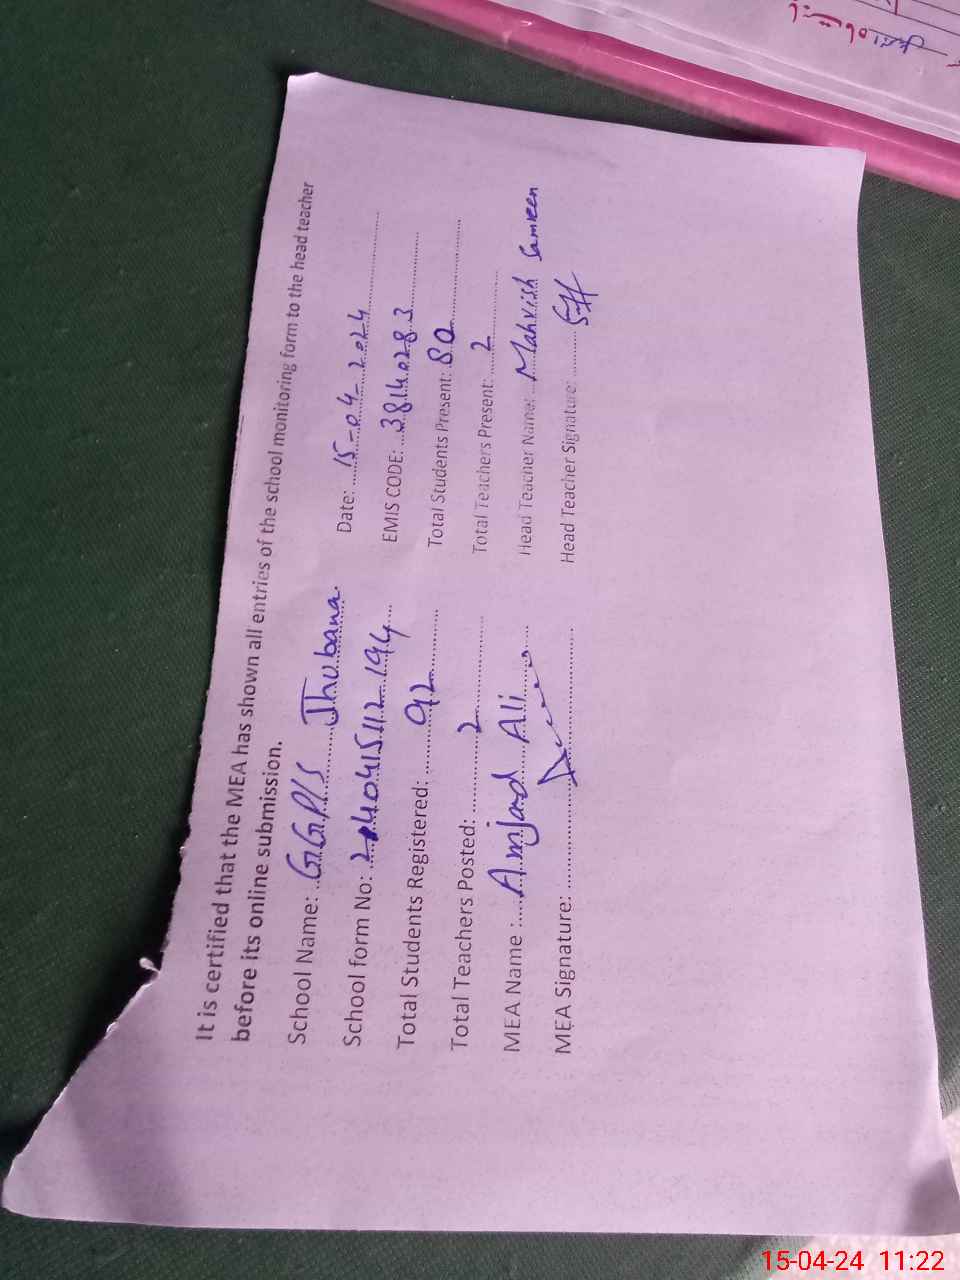 It is certified that the MEA has shown all entries of the school monitoring form to the head teacher
before its online submission.
School Name: G.G.P/S Jhubana. Date: 15-04-2024
School form No: 240415112194 EMIS CODE: 38140283
Total Students Registered: 92 Total Students Present: 80
Total Teachers Posted: 2 Total Teachers Present: 2
MEA Name : Amjad Ali Head Teacher Name: Mahvish Samreen
MEA Signature: Head Teacher Signature:
15-04-24 11:22